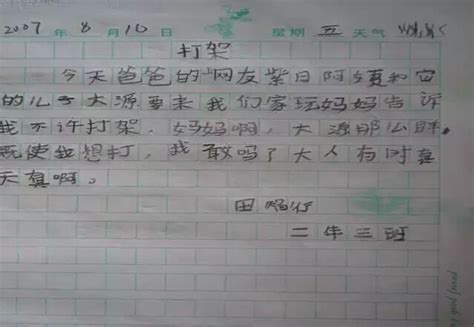 2007 年 8 月 10 日 星期 五 天气
打架
今天爸爸的网友紫日阿须和它
的儿子大源要来我们家玩妈妈告诉
我不许打架。妈妈啊，大源那么胖。
既使我想打，我敢吗？大人有时真
天真啊。
田
二年三班